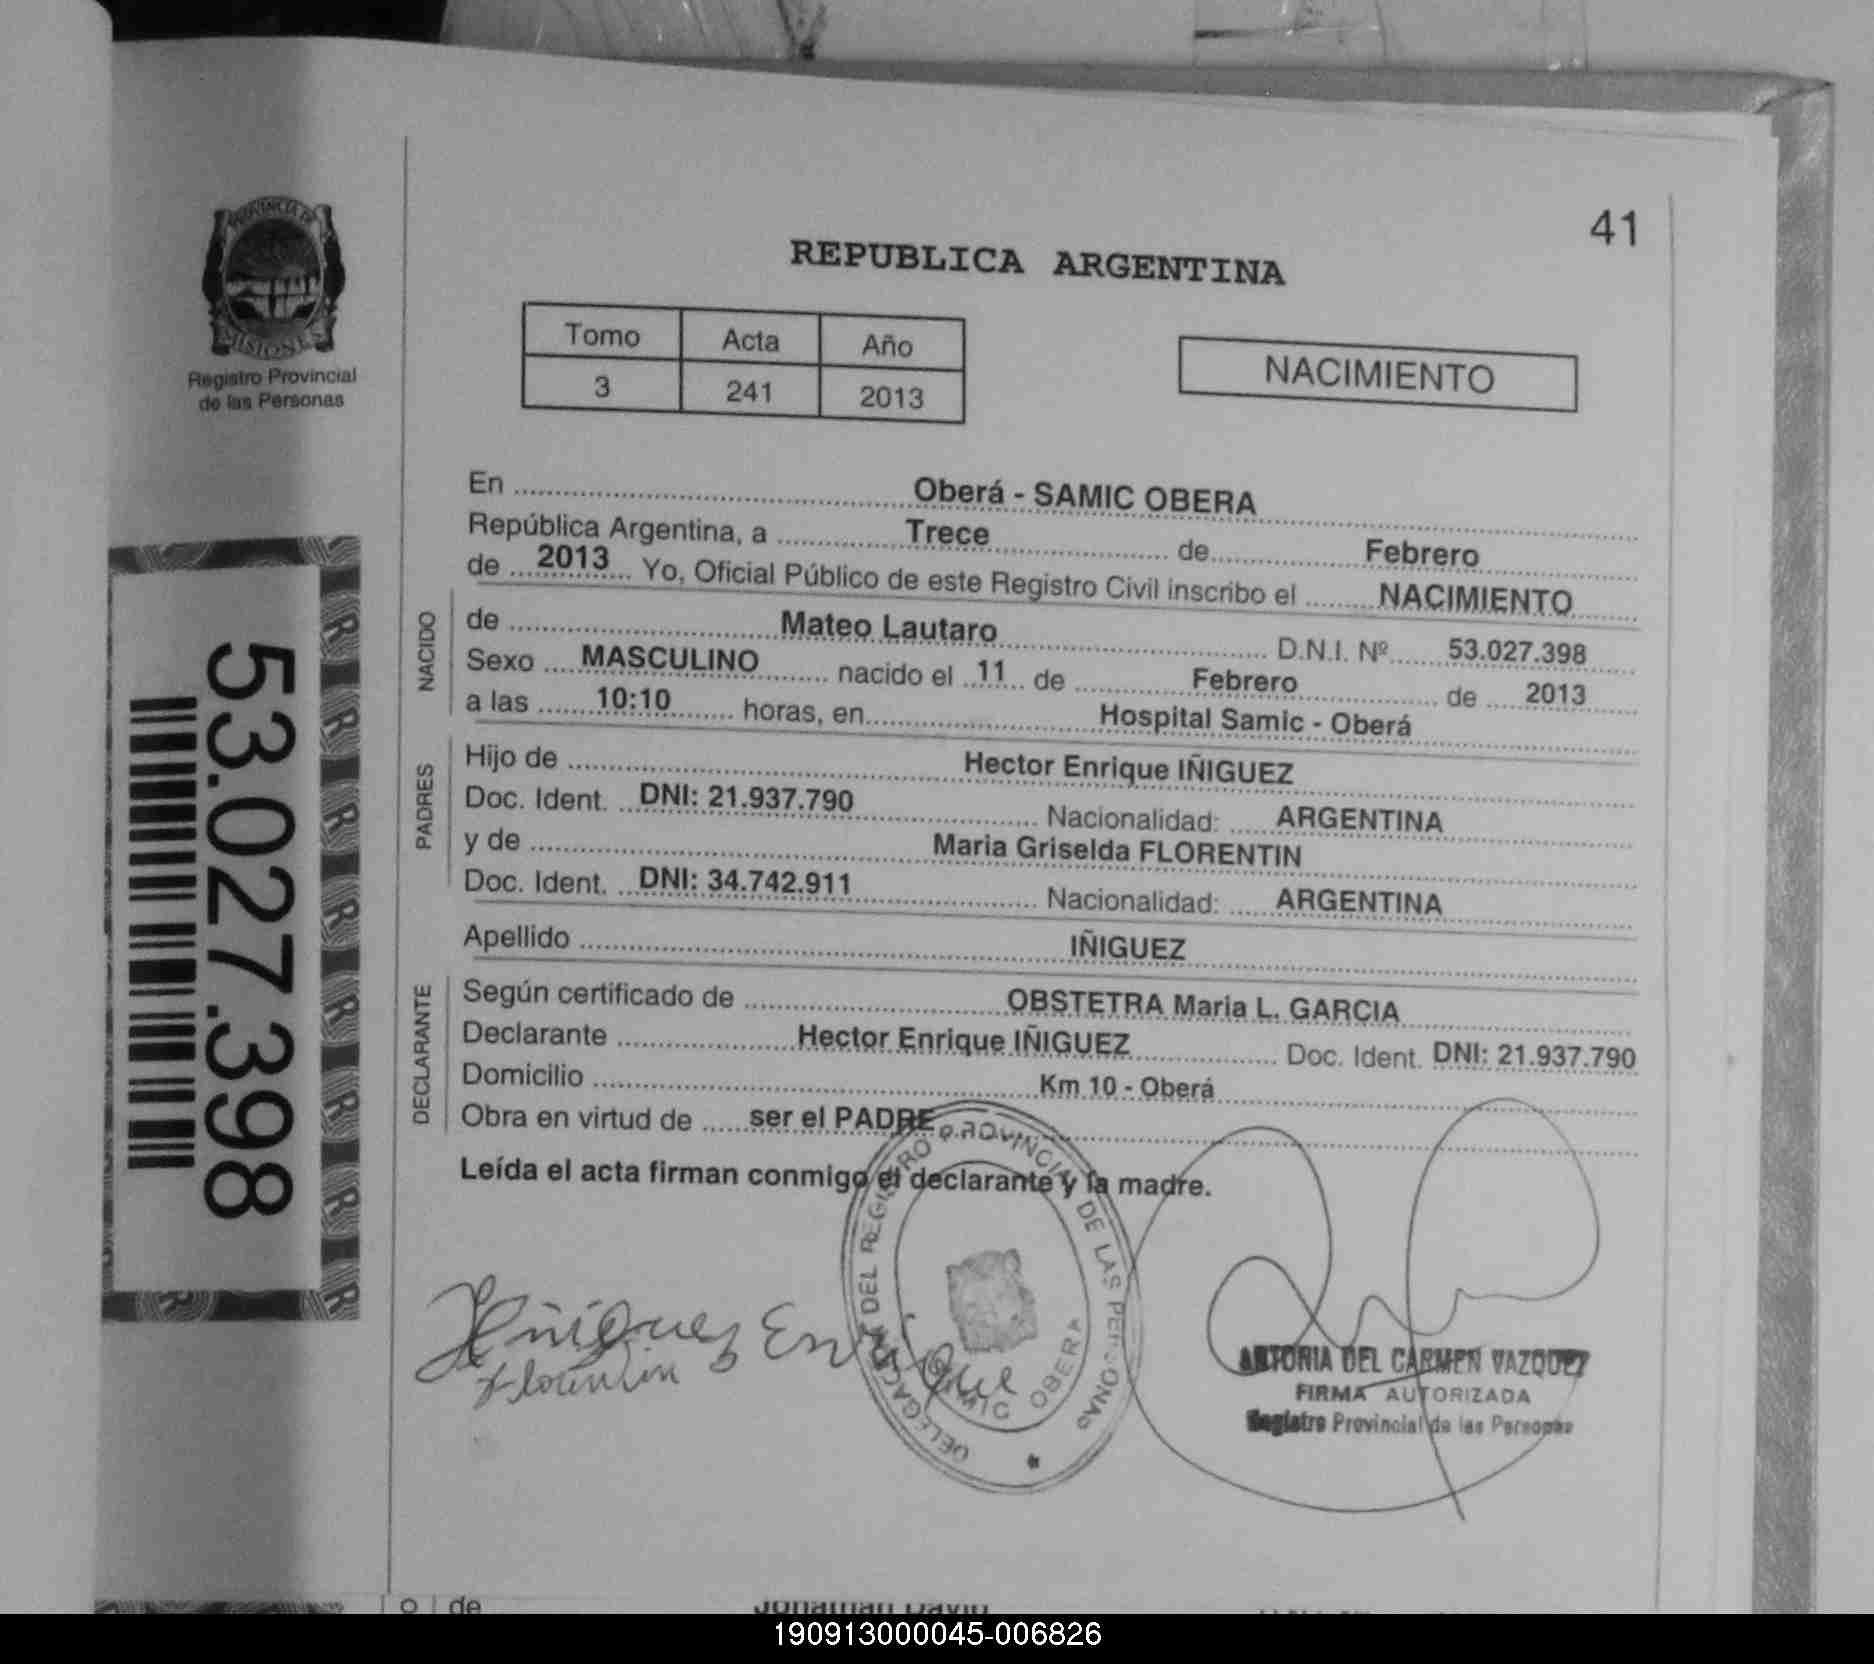 41
PROVINCIA DE
MISIONES
Registro Provincial
de las Personas
REPUBLICA ARGENTINA
Tomo Acta Año
3 241 2013
NACIMIENTO
53.027.398
En Oberá - SAMIC OBERA
República Argentina, a Trece de Febrero
de 2013 Yo, Oficial Público de este Registro Civil inscribo el NACIMIENTO
NACIDO
de Mateo Lautaro D.N.I. Nº 53.027.398
Sexo MASCULINO nacido el 11 de Febrero de 2013
a las 10:10 horas, en Hospital Samic - Oberá
PADRES
Hijo de Hector Enrique IÑIGUEZ
Doc. Ident. DNI: 21.937.790 Nacionalidad: ARGENTINA
y de Maria Griselda FLORENTIN
Doc. Ident. DNI: 34.742.911 Nacionalidad: ARGENTINA
Apellido IÑIGUEZ
DECLARANTE
Según certificado de OBSTETRA Maria L. GARCIA
Declarante Hector Enrique IÑIGUEZ Doc. Ident. DNI: 21.937.790
Domicilio Km 10 - Oberá
Obra en virtud de ser el PADRE
Leída el acta firman conmigo el declarante y la madre.
DELEGACION DEL REGISTRO PROVINCIAL DE LAS PERSONAS
SAMIC OBERA
Iñiguez Enrique
Florentin
ANTORIA DEL CARMEN VAZQUEZ
FIRMA AUTORIZADA
Registro Provincial de las Personas
de Jonathan David
190913000045-006826